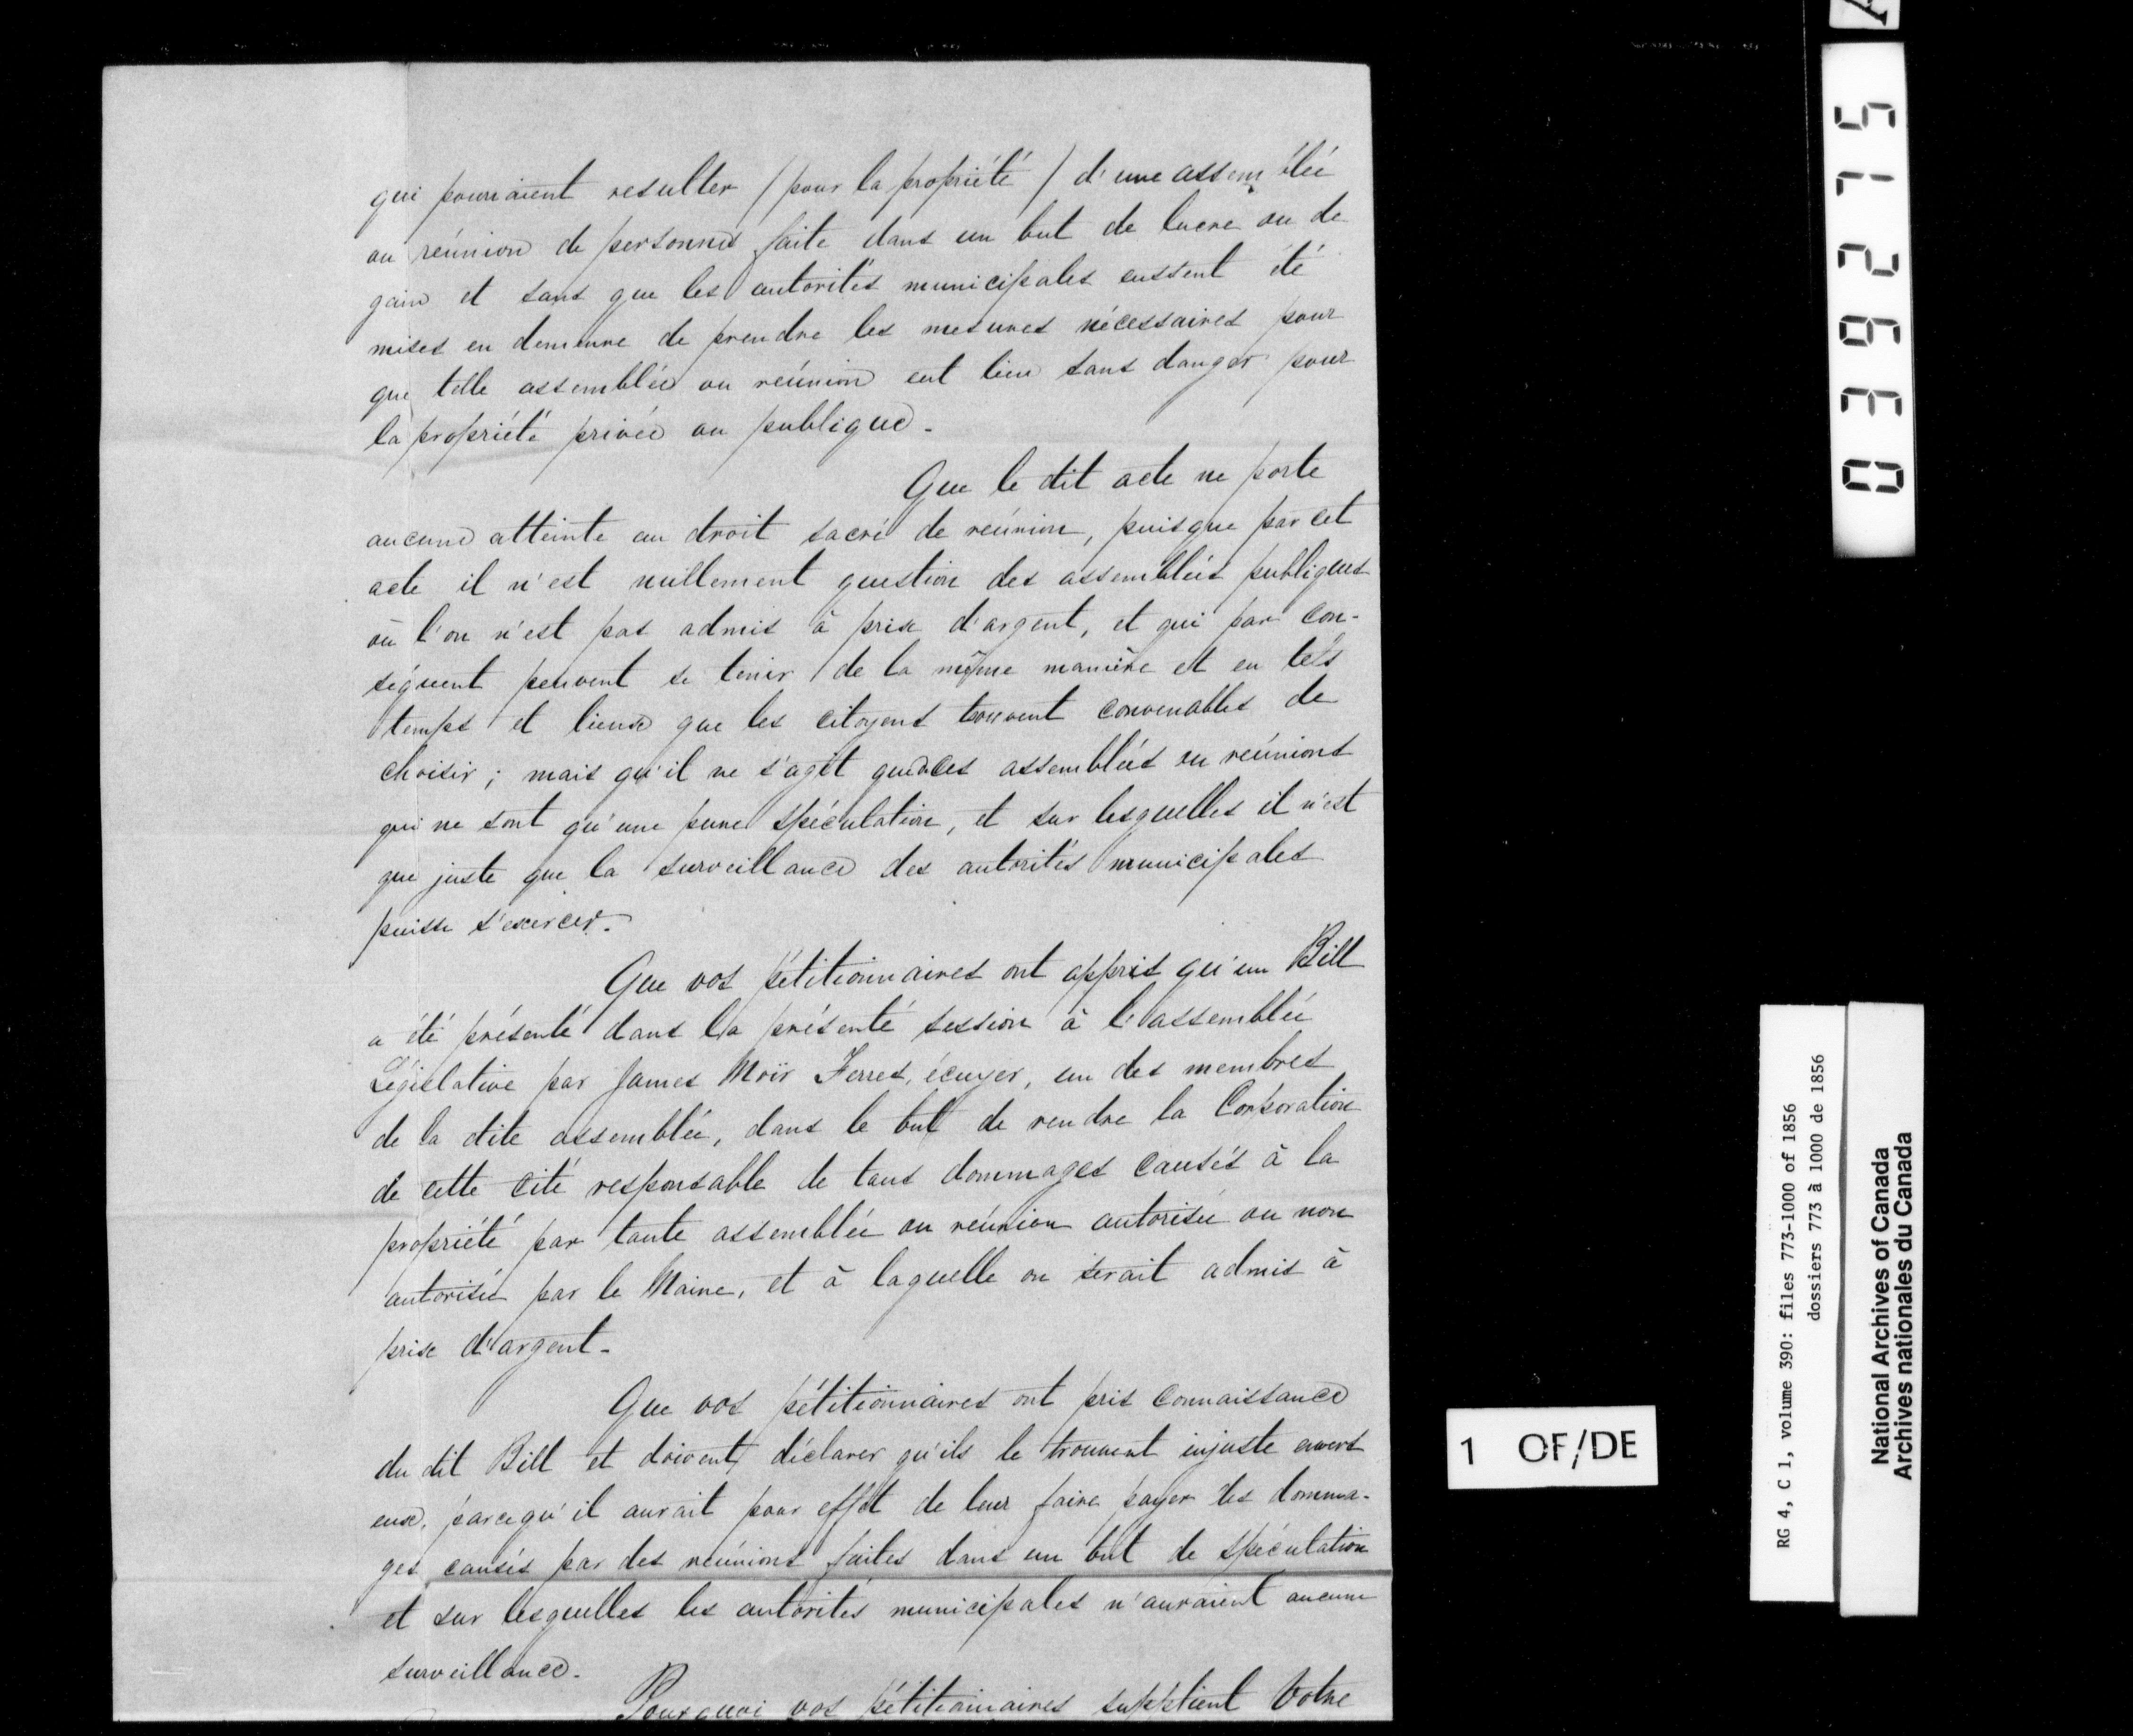 qui pourraient resulter (pour la propriété) d'une assemblée
ou réunion de personnes faite dans un but de lucre ou de
gain et sans que les autorités municipales eussent été
mises en demeure de prendre les mesures nécessaires pour
que telle assemblée ou reúnion eut lieu sans danger pour
la propriété privée ou publique.
Que le dit acte ne porte
aucune atteinte au droit sacré de reúnion, puisque par cet
acte il n'est nullement question des assemblées publiques
où l'on n'est pas admis à prix d'argent, et qui par con-
séquent peuvent se tenir de la même manière et en tels
temps et lieux que les citoyens trouvent convenables de
choisir; mais qu'il ne s'agit que des assemblées ou reúnions
qui ne sont qu'une pure spéculation, et sur lesquelles il n'est
que juste que la surveillance des autorités municipales
puisse s'exercer.
Que vos pétitionnaires ont appris qu'un Bill
a été présenté dans la présente session à l'assemblée
Législative par James Moïr Ferres, écuyer, un des membres
de la dite assemblée, dans le but de rendre la Corporation
de cette cité responsable de tous dommages causés à la
propriété par toute assemblée ou reúnion autorisée ou non
autorisée par le Maire, et à laquelle on serait admis à
prix d'argent.
Que vos pétitionnaires ont pris connaissance
du dit Bill et doivent déclarer qu'ils le trouvent injuste envers
eux, parcequ'il aurait pour effet de leur faire payer des domma-
ges causés par des reúnions faites dans un but de spéculation
et sur lesquelles les autorités municipales n'auraient aucune
surveillance.
Pourquoi vos pétitionnaires supplient Votre
0392715
1 OF/DE
RG 4, C 1, volume 390: files 773-1000 of 1856
dossiers 773 à 1000 de 1856
National Archives of Canada
Archives nationales du Canada